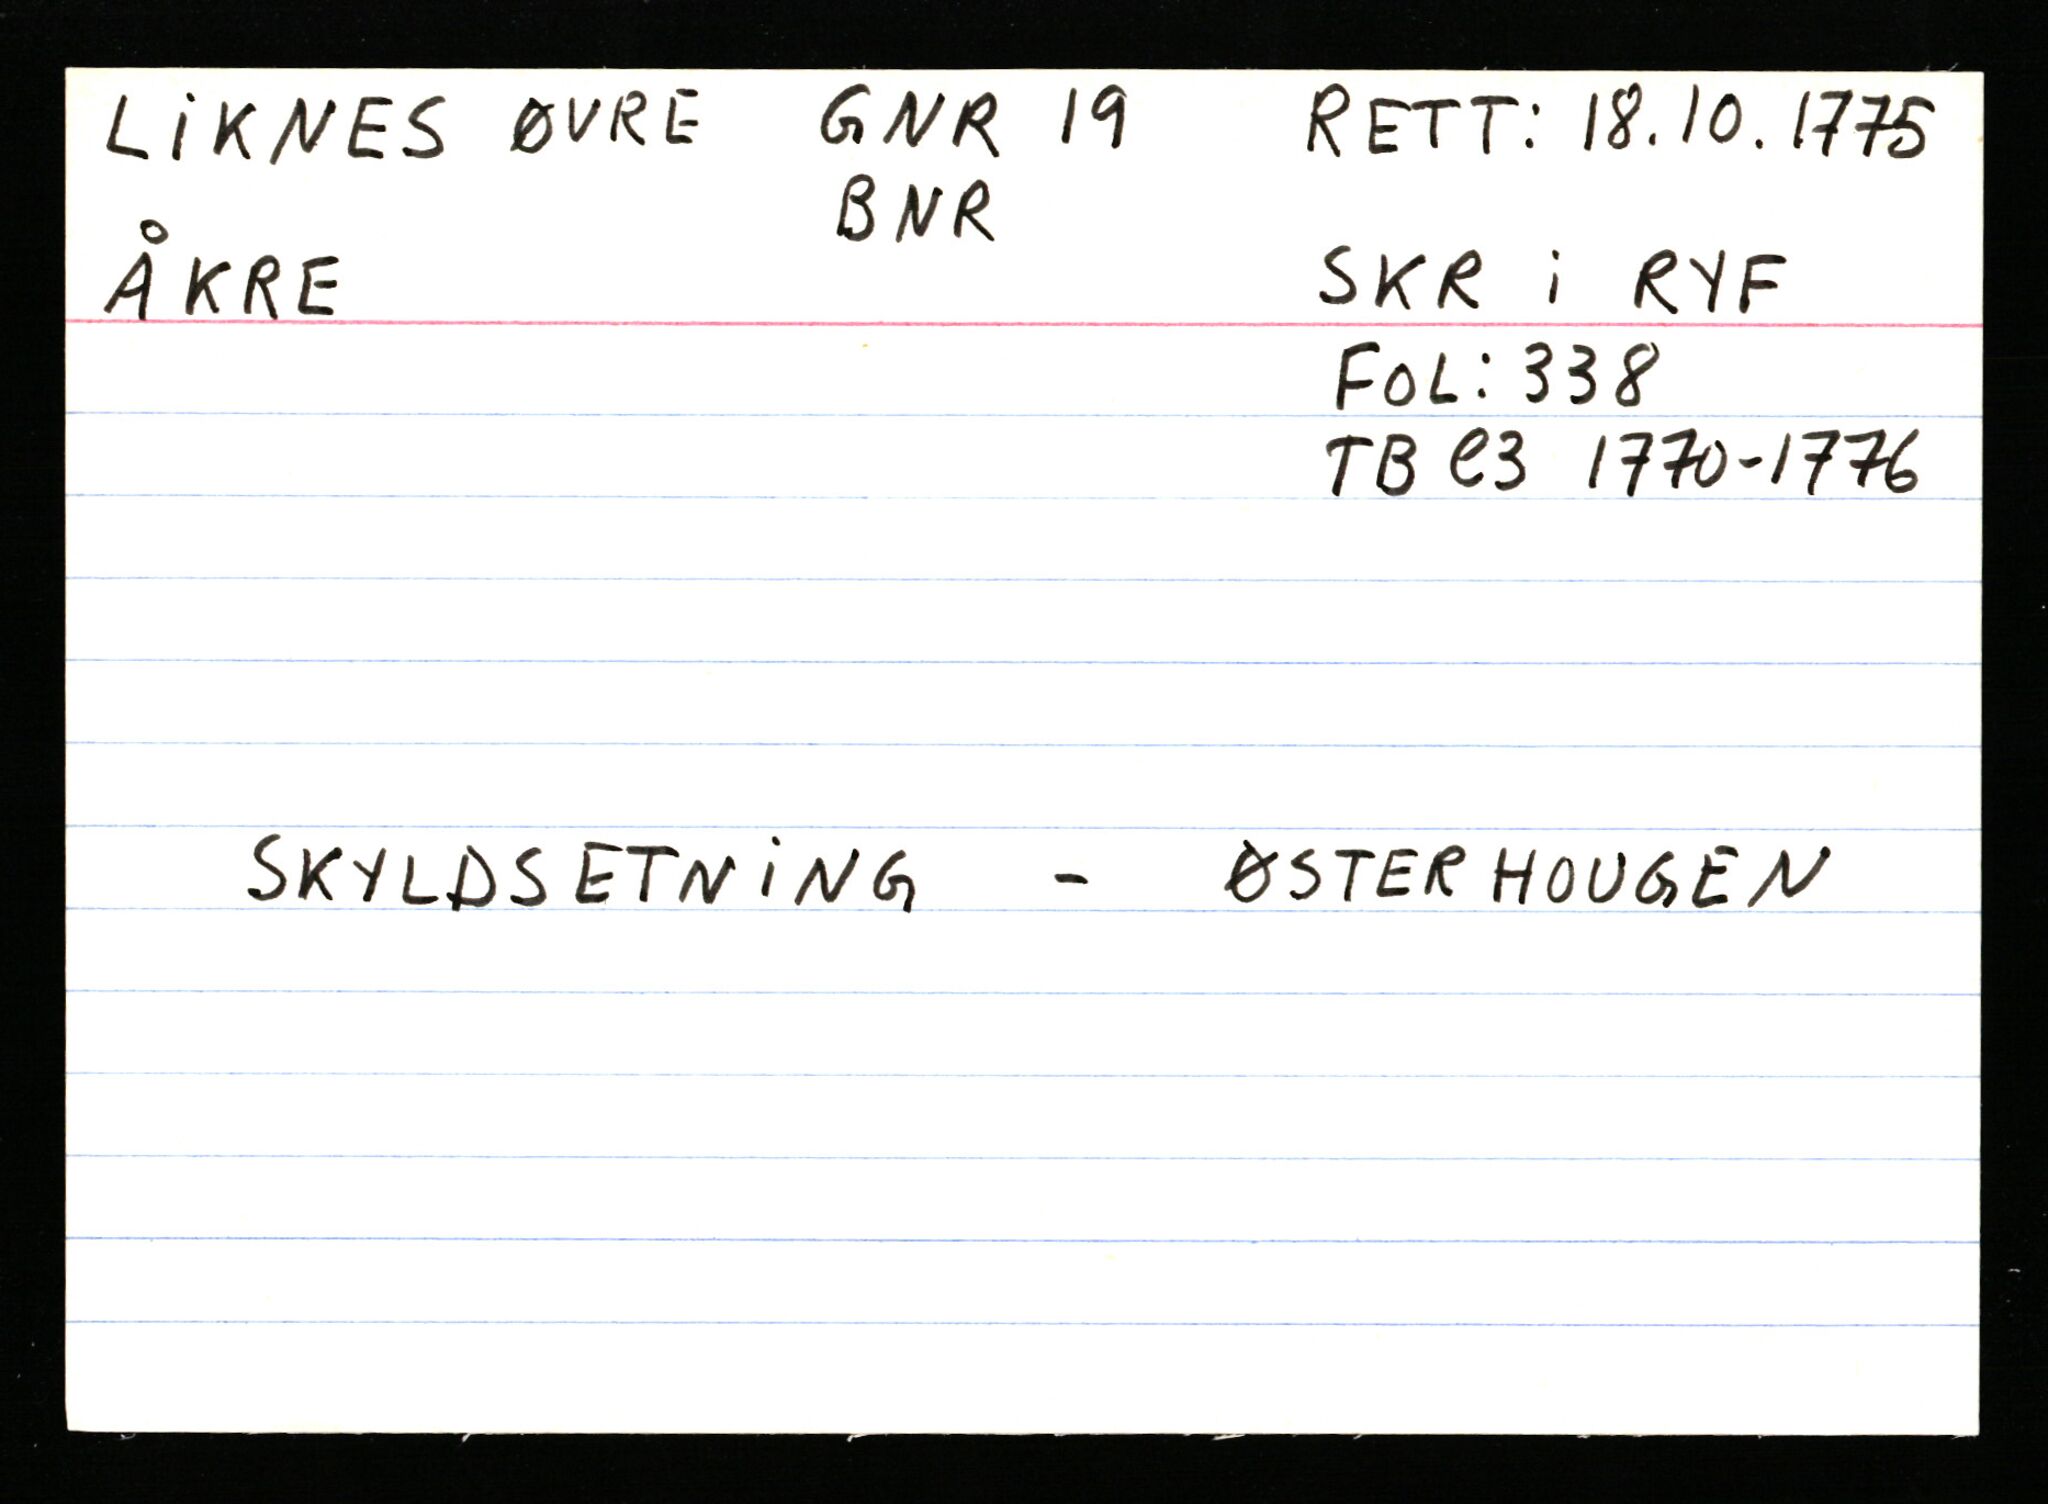 LiKNES ØVRE GNR 19 RETT: 18.10.1775
BNR
ÅKRE SKR i RYF
FOL: 338
TB C3 1770-1776
SKYLDSETNiNG - ØSTERHOUGEN